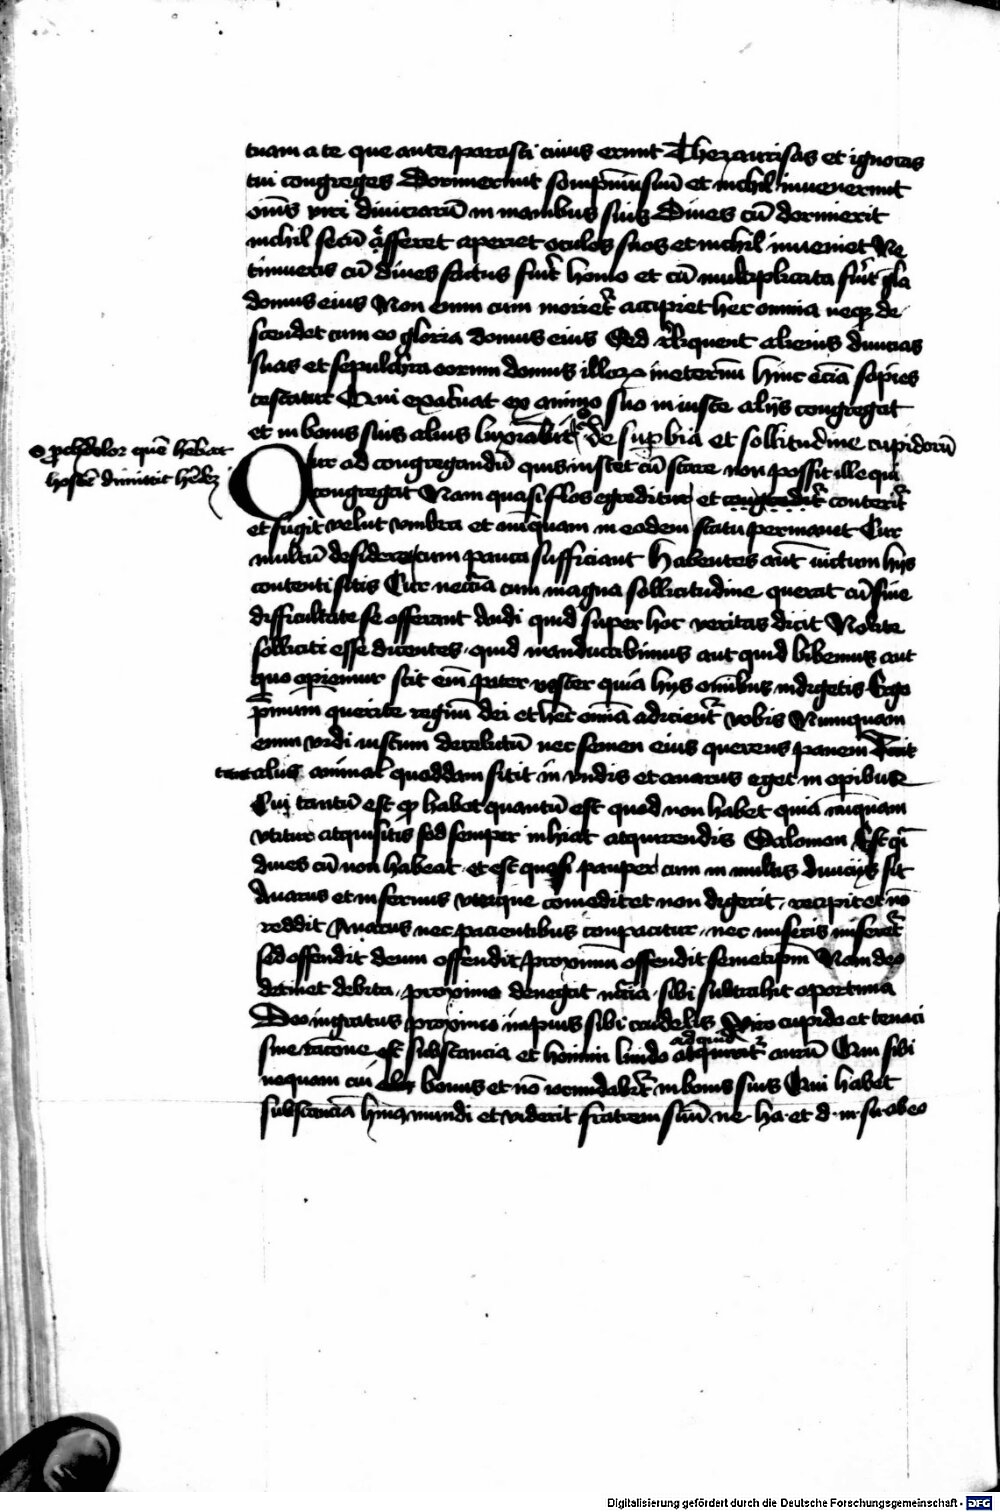 tuam a te que ante parasti cuius erunt Thezaurisas et ignoras
cui congreges Dormierunt sompnū suū et nichil invenerunt
oms viri diviciarū in manibus suis Dives cū dormierit
nichil secū afferet aperiet oculos suos et nichil inveniet Ne
timueris cū dives factus fuīt homo et cū multiplicata fuīt gla
domus eius Non enim cum morietr accipiet hec omnia neqz de
scendet cum eo gloria domus eius Sed rliquent alienis divicias
suas et sepulchra eorum domus illorz in eternū hinc eciā sapiēs
testatur Qui exacvat ex animo suo iniuste aliis congregat
et in bonis suis alius luxriabitr De supbia et sollitudine cupidorū
o prohdolor quē hēbat
hostē dimittit hēdez
Cur ad congregandū quis instet cū stare non possit ille qui
congregat Nam quasi flos egreditur et congreditr conteritr
et fugit velut umbra et nūquam in eodem statu permanet Cur
multū desideret cum pauca sufficiant Habentes aūt victum hiis
contenti sitis Cur necīa cum magna sollicitudine querat cū sine
difficultate se offerant Audi quid super hoc veritas dicit Nolite
solliciti esse dicentes quid manducabimus aut quid bibemus aut
quo opiemur scit em pater vester quia hiis omibus indigetis Ergo
pmum querite regnū dei et hec omia adicientr vobis Nunquam
enim vidi iustum derelictū nec semen eius querens panem
tantalus animal quoddam sitit in undis et avarus eget in opibus
Cui tantū est qd habet quantū est quod non habet quia nūquam
utitur acquisitis sed semper inhiat acquirendis Salomon Est qi
dives cū non habeat et est quasi pauper cum in multis diviciis sit
Avarus et infernus uterque comedit et non digerit recipit et nō
reddit Avarus nec pacientibus compatitur nec miseris miseretr
sed offendit deum offendit proximū offendit semetipm Nam deo
detinet debita proximo denegat ncīa sibi subtrahit oportuna
Deo ingratus proximo impius sibi crudelis Viro cupido et tenaci
ad quid
sine racōne est substancia et homini livido acquiratr aurū Qui sibi
nequam cui bonus et nō iocundabitr in bonis suis Qui habet
substancia hui9 mundi et viderit fratrem suū ne ha et d in su ab eo
Digitalisierung gefördert durch die Deutsche Forschungsgemeinschaft - DFG